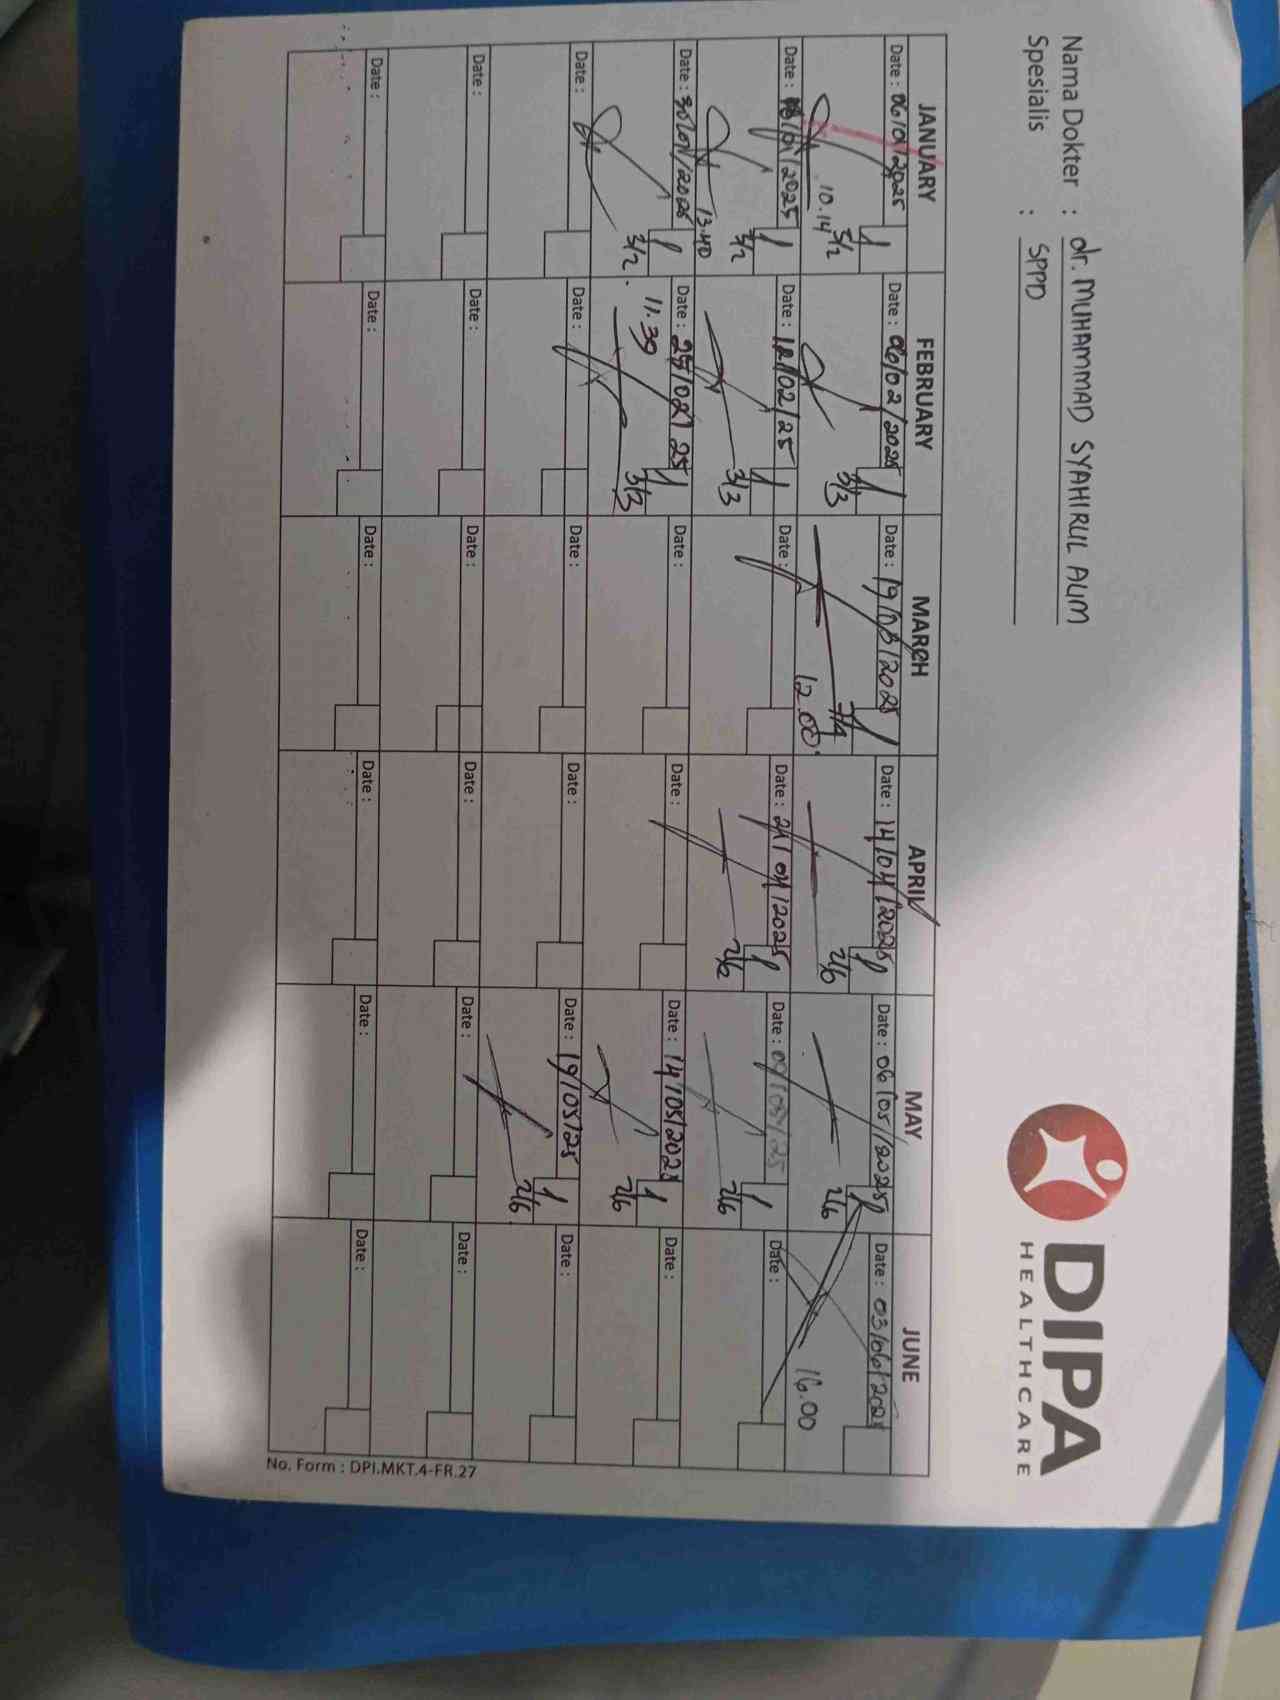 Nama Dokter : dr. MUHAMMAD SYAHIRUL ALIM
Spesialis : SPPD
DIPA
HEALTHCARE
JANUARY FEBRUARY MARCH APRIL MAY JUNE
Date : 06/01/2025 Date : 06/02/2025 Date : 19/03/2025 Date : 14/04/2025 Date : 06/05/2025 Date : 03/06/2025
10.14 3/2 3/3 7/4 12.00 2/6 2/6 16.00
Date : /01/2025 Date : 12/02/25 Date : Date : 21/04/2025 Date : 09/05/25 Date :
13.40 3/2 3/3 2/6 2/6
Date : 30/01/2025 Date : 25/02/25 Date : Date : Date : 14/05/2025 Date :
3/2 11.39 3/3 2/6
Date : Date : Date : Date : Date : 19/05/25 Date :
2/6
Date : Date : Date : Date : Date : Date :
Date : Date : Date : Date : Date : Date :
No. Form : DPI.MKT.4-FR.27